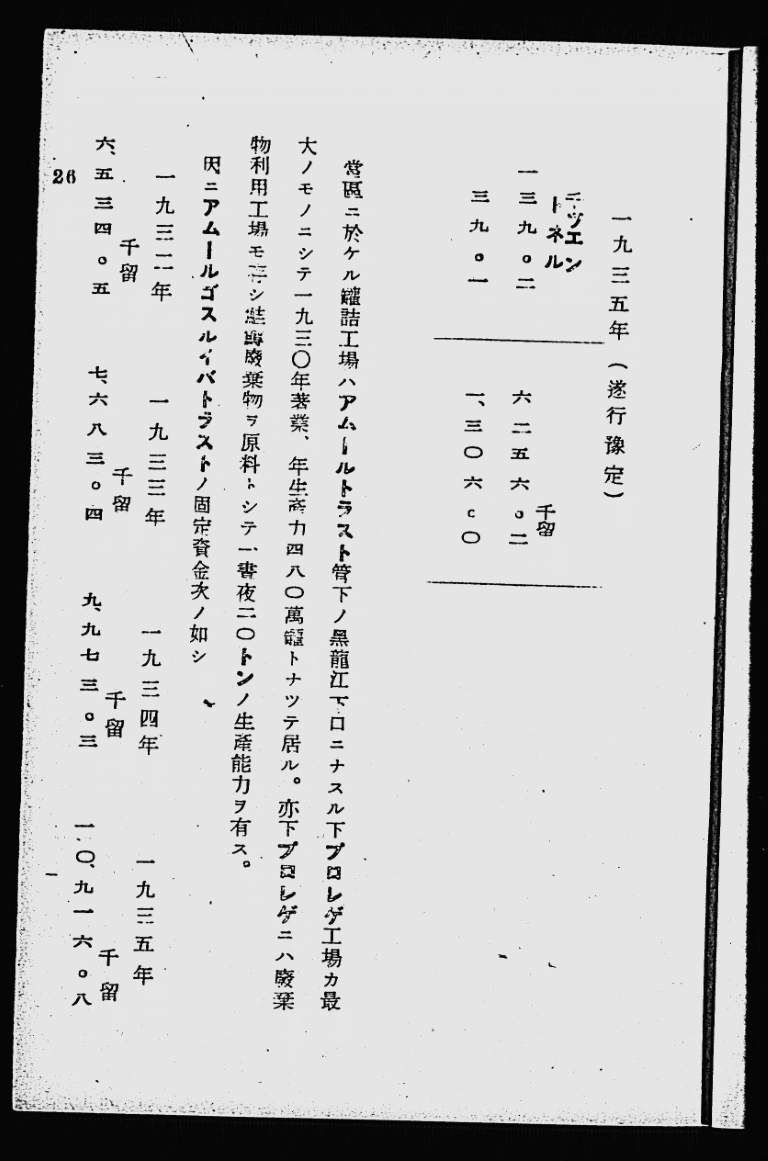 一九三五年(遂行豫定)
千ツエントネル
一三九。二
三九。一
千留
六二五六。二
一、三〇六。〇
當區ニ於ケル罐詰工場ハアムールトラスト管下ノ黑龍江下口ニナスル下プロレゲ工場カ最
大ノモノニシテ一九三〇年著業、年生產力四八〇萬罐トナツテ居ル。亦下プロレゲニハ廢棄
物利用工場モ存シ鮭鱒廢棄物ヲ原料トシテ一晝夜二〇トンノ生產能力ヲ有ス。
因ニアムールゴスルイバトラストノ固定資金次ノ如シ
一九三二年
千留
六、五三四。五
一九三三年
千留
七、六八三。四
一九三四年
千留
九、九七三。三
一九三五年
千留
一〇、九一六。八
26